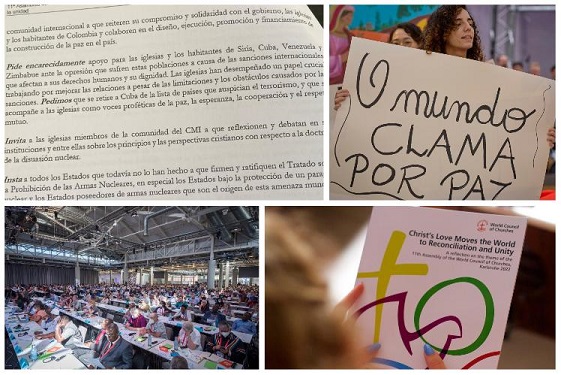 11ª Asamblea
la unidad
comunidad internacional a que reiteren su compromiso y solidaridad con el gobierno, las iglesias
y los habitantes de Colombia y colaboren en el diseño, ejecución, promoción y financiamiento de
la construcción de la paz en el país.
Pide encarecidamente apoyo para las iglesias y los habitantes de Siria, Cuba, Venezuela y
Zimbabue ante la opresión que sufren estas poblaciones a causa de las sanciones internacionales
que afectan a sus derechos humanos y su dignidad. Las iglesias han desempeñado un papel crucial
trabajando por mejorar las relaciones a pesar de las limitaciones y los obstáculos causados por las
sanciones. Pedimos que se retire a Cuba de la lista de países que auspician el terrorismo, y que
acompañe a las iglesias como voces proféticas de la paz, la esperanza, la cooperación y el respeto
mutuo.
Invita a las iglesias miembros de la comunidad del CMI a que reflexionen y debatan en
instituciones y entre ellas sobre los principios y las perspectivas cristianas con respecto a la doct
de la disuasión nuclear.
Insta a todos los Estados que todavía no lo han hecho a que firmen y ratifiquen el Tratado so
a Prohibición de las Armas Nucleares, en especial los Estados bajo la protección de un para
uclear y los Estados poseedores de armas nucleares que son el origen de esta amenaza mund
O mundo
CLAMA
POR PAZ
World Council
of Churches
Christ's Love Moves the World
to Reconciliation and Unity
A reflection on the theme of the
11th Assembly of the World Council of Churches,
Karlsruhe 2022